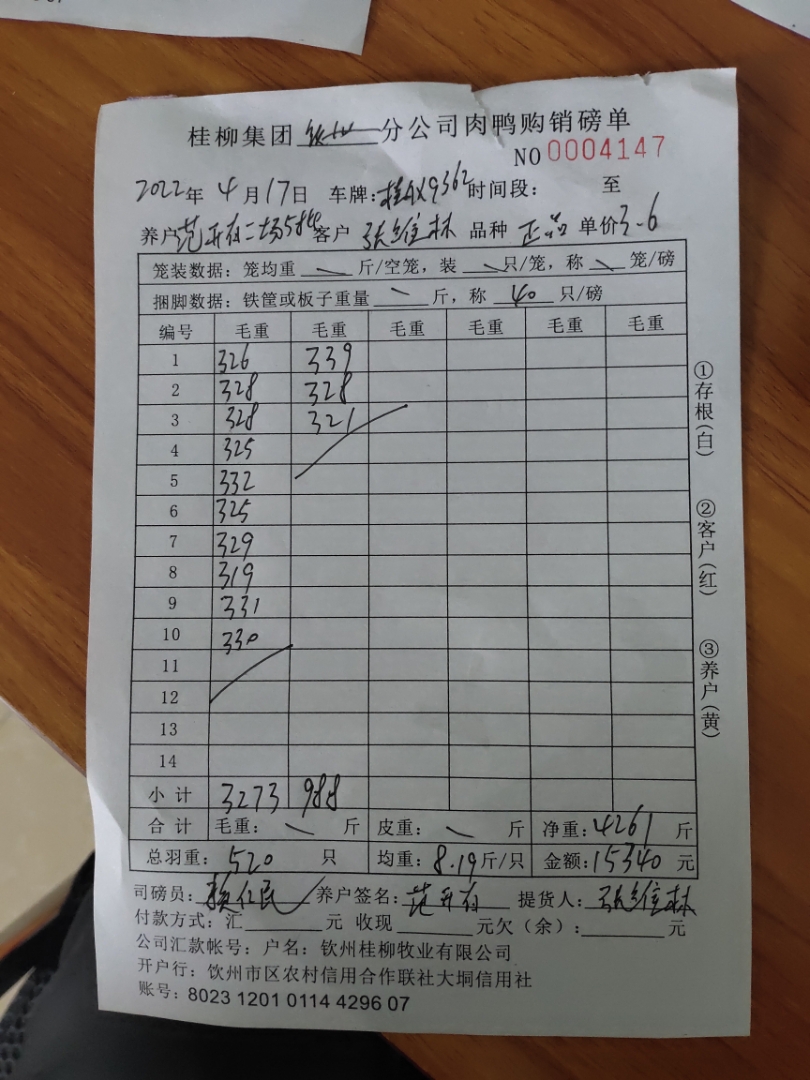 桂柳集团 钦州 分公司肉鸭购销磅单
NO 0004147
2022年 4月17日 车牌:桂AX9362 时间段: 至
养户 范开有二场5#4 客户 张维林 品种 正品 单价3.6
笼装数据: 笼均重 \ 斤/空笼, 装 \ 只/笼, 称 \ 笼/磅
捆脚数据: 铁筐或板子重量 \ 斤, 称 40 只/磅
编号 毛重 毛重 毛重 毛重 毛重 毛重
1 326 339
2 328 328
3 328 321
4 325
5 332
6 325
7 329
8 319
9 331
10 330
11
12
13
14
小计 3273 988
合计 毛重: \ 斤 皮重: \ 斤 净重: 4261 斤
总羽重: 520 只 均重: 8.19斤/只 金额: 15340 元
司磅员: 赖仁民 养户签名: 范开有 提货人: 张维林
付款方式: 汇 元 收现 元欠(余): 元
公司汇款帐号: 户名: 钦州桂柳牧业有限公司
开户行: 饮州市区农村信用合作联社大垌信用社
账号: 8023 1201 0114 4296 07
①存根(白)
②客户(红)
③养户(黄)